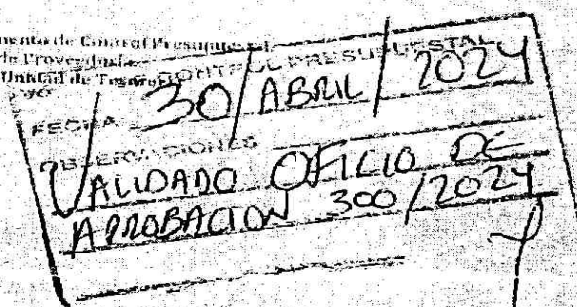 mento de Control Presupuestal
de Proveeduría
Unidad de Tesorería
CONTROL PRESUPUESTAL
FECHA 30/ABRIL/2024
OBSERVACIONES
VALIDADO OFICIO DE
APROBACION 300/2024